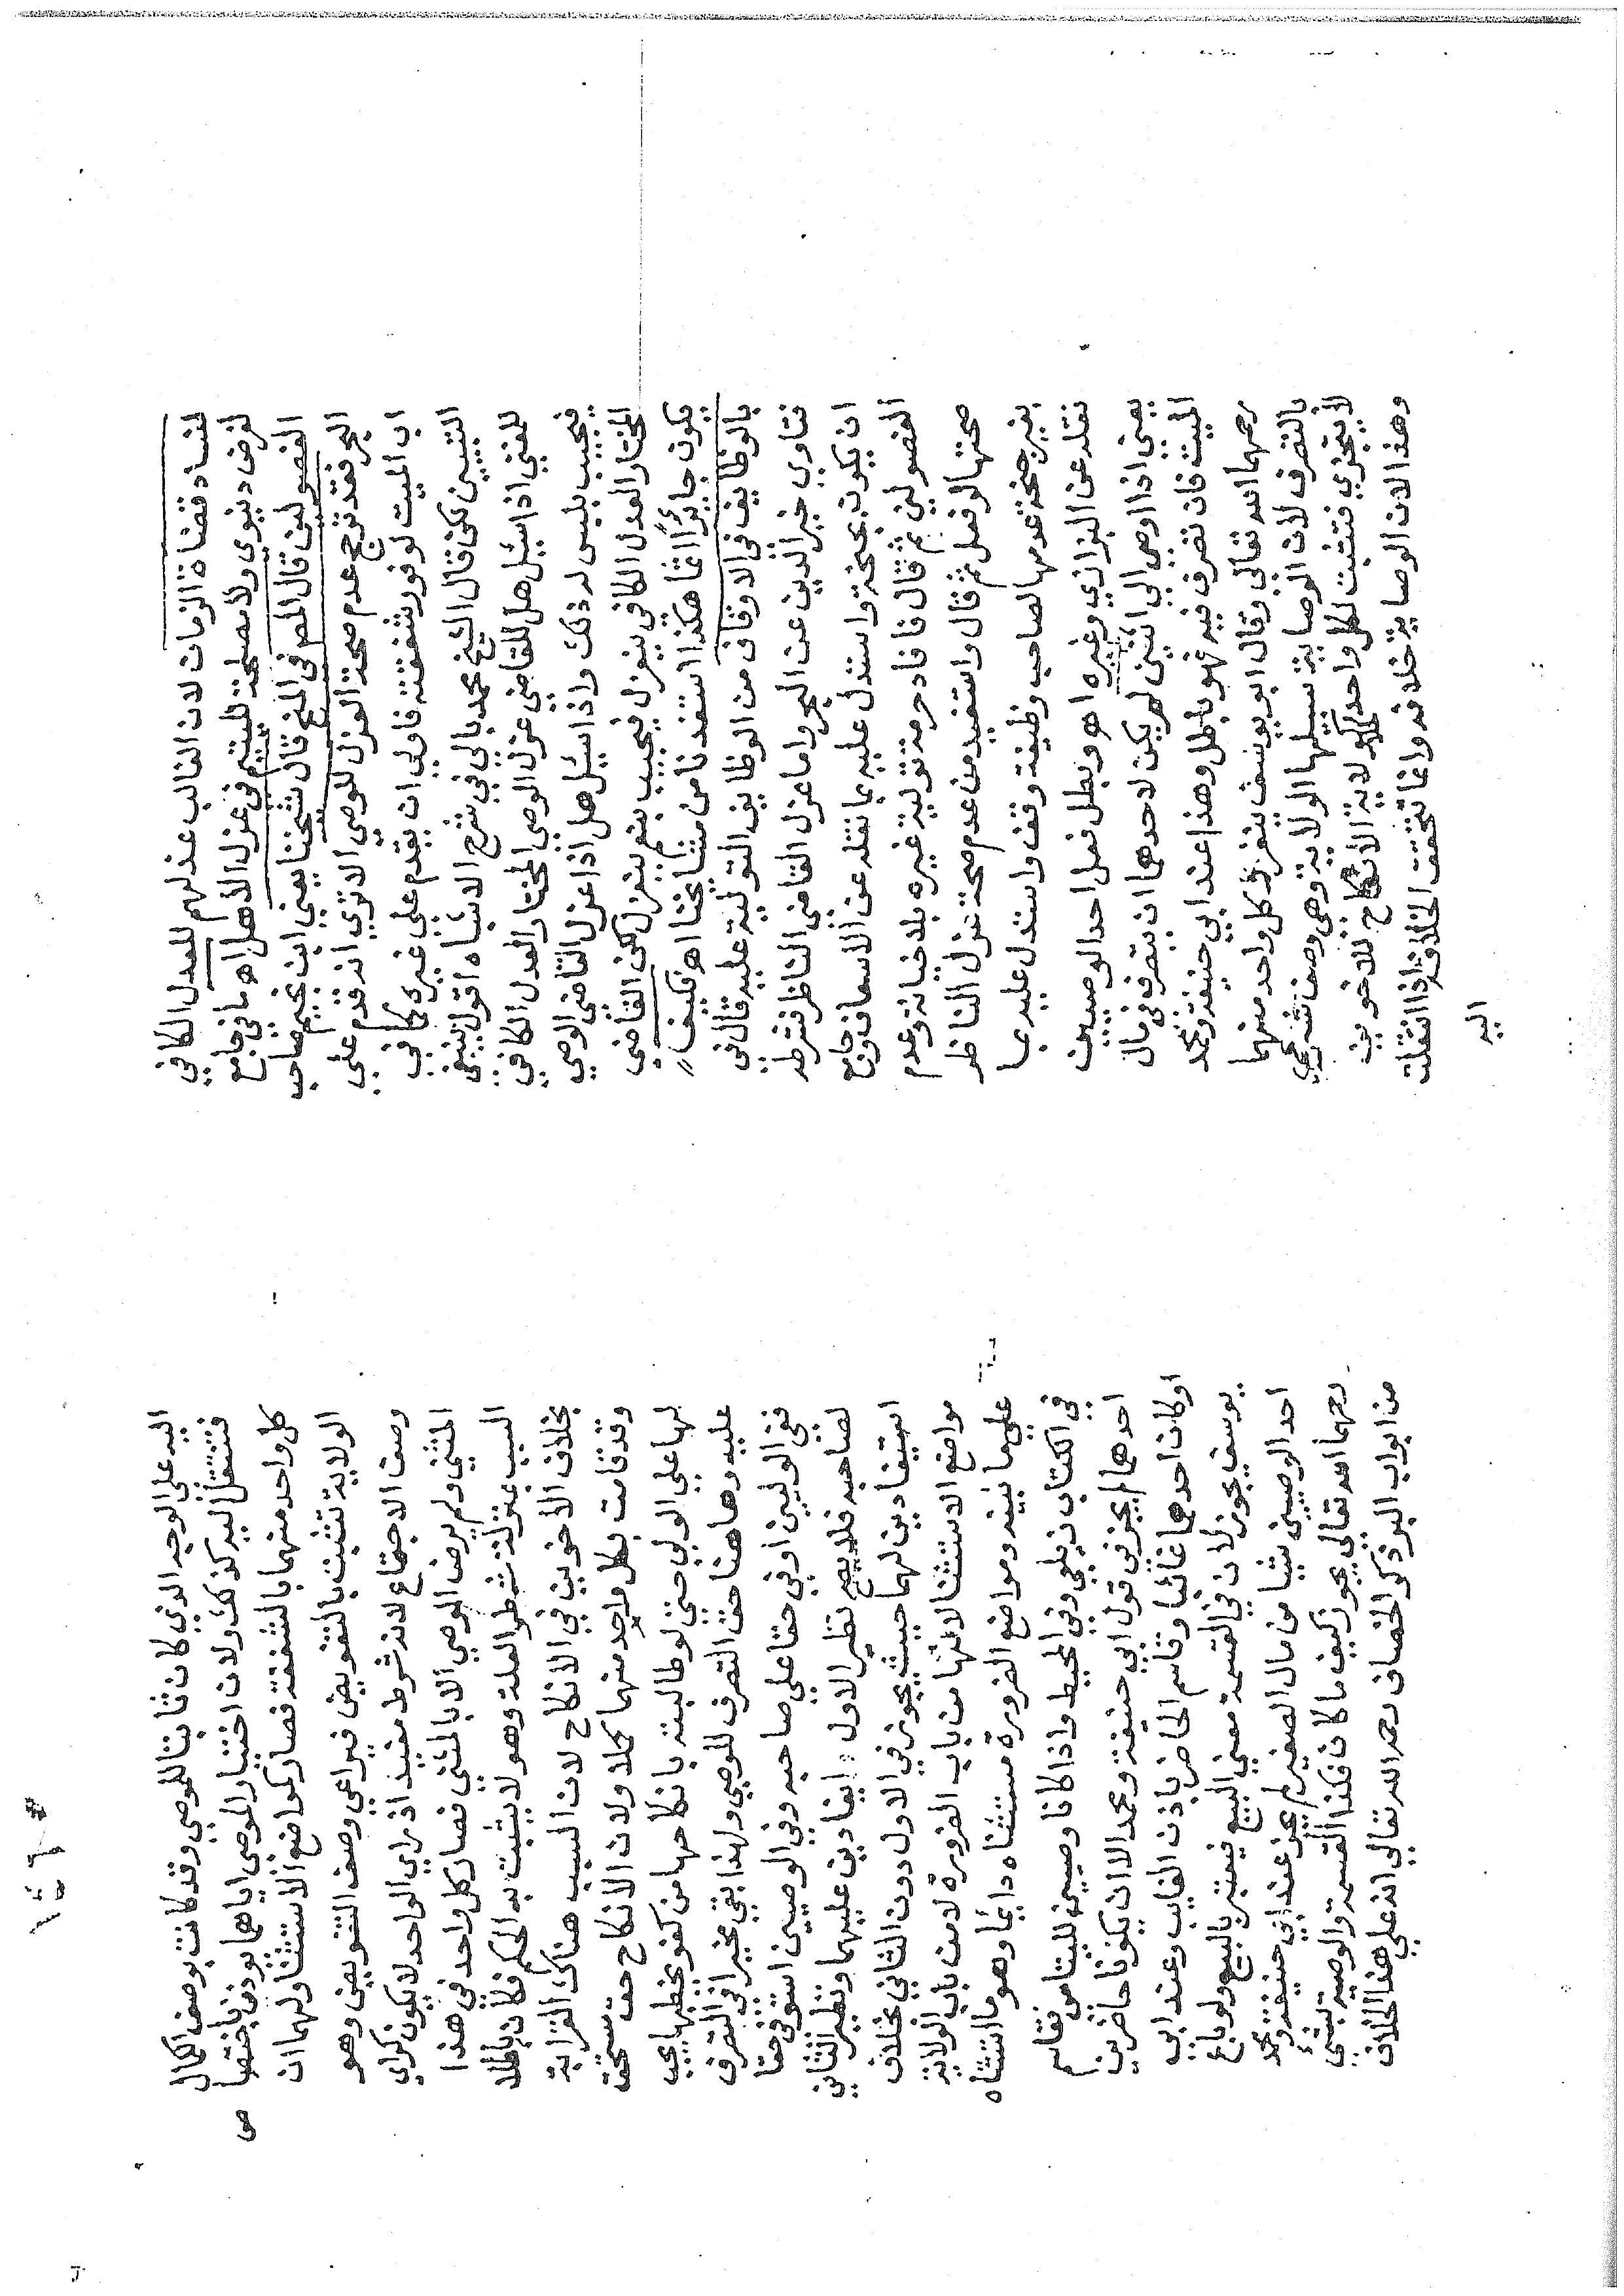 لفساد قضاة الزمات لان الغالب عذلهم للعدل الكافي
لغرض دنيوي ولا مصلحة لليتيم في عزل الاهل اه ما في جامع
الفصولين قال المص في المنح قال شيخنا يعني ابن نجيم صاحب
البحر فقد ترجح عدم صحة العزل للوصي الا تري انه قدم علي
اب الميت لوفور شفقته فاولي ان يقدم علي غيره كما في
التبيين لكن قال الشيخ محمد بالي في شرح الاشباه اقول ينبغي
للمفتي اذا سيئل هل للقاضي عزل الوصي المختار العدل الكافي
فيجيب بليس له ذلك واذا سيئل هل اذا عزل القاضي الوصي
المختار العدل الكافي ينعزل فيجيب بنعم ينعزل لكن القاضي
يكون جايرًا اثما هكذا استفدنا من مشايخنا اه فكيف
بالوظايف في الاوقاف من الوظايف التولية عليه قال في
فتاوي خير الدين عن البحر واما عزل القاضي الناظر فشرطه
ان يكون بجنحة واستدل عليه بما نقله عن الاسعاف وجامع
الفصولين ثم قال فافاد حرمة تولية غيره بلا خيانة وعدم
صحتها لو فعل ثم قال واستفيد من عدم صحة عزل الناظر
بغير جنحة عدمها لصاحب وظيفة وقف واستدل عليه بما
نقله عن البزازي وغيره اه وبطل فعل احد الوصيين
يعني اذا اوصي الي اثنين لم يكن لاحدهما ان يتصرف في مال
الميت فان تصرف فيه فهو باطل وهذا عند ابي حنيفة ومحمد
رحمهما الله تعالي وقال ابو يوسف ينفرد كل واحد منهما
بالتصرف لان الوصاية سبيلها الولاية وهي وصف شرعي
لا يتجزي فتثبت لكل واحد كملا كولاية الانكاح للاخوين
وهذا لان الوصاية خلافة وانما تتحقق الخلافة اذا انتقلت
اليه
١٤٦
اليه علي الوجه الذي كان ثابتا للموصي وقد كانت بوصف الكمال
فتنتقل اليه كذلك ولان اختيار الموصي اياهما يوذن باختصاص
كل واحد منهما بالشفقة فصار كمواضع الاستثنا ولهما ان
الولاية تثبت بالتفويض فيراعي وصف التفويض وهو
وصف الاجتماع لانه شرط مفيد اذ راي الواحد لا يكون كراي
المثني ولم يرض الموصي الا بالمثني فصار كل واحد في هذا
السبب بمنزلة شطر العلة وهو لا يثبت به الحكم فكان باطلا
بخلاف الاخوين في الانكاح لان السبب هناك القرابة
وقد قامت بكل واحد منهما كملا ولان الانكاح حق مستحق
لها علي الولي حتي لو طالبته بانكاحها من كفو يخطبها يجب
عليه وهاهنا حق التصرف للموصي ولهذا بقي مخيرا في التصرف
ففي الوليين اوفي حقا علي صاحبه وفي الوصيين استوفي حقا
لصاحبه فلا يصح نظير الاول ايفا دين عليهما ونظير الثاني
استيفا دين لهما حيث يجوز في الاول دون الثاني بخلاف
مواضع الاستثنا لانها من باب الضرورة لا من باب الولاية
علي ما نبينه ومواضع الضرورة مستثناه دايما وهو ما استثناه
في الكتاب زيلعي وفي المحيط واذا كانا وصيين لليتامي فقاسم
احدهما لم يجز في قول ابي حنيفة ومحمد الا ان يكونا حاضرين
او كان احدهما غائبا وقاسم الحاضر باذن الغايب وعند ابي
يوسف يجوز لان في القسمة معني البيع فيعتبر بالبيع ولو باع
احد الوصيين شيئا من مال الصغير لم يجز عند ابي حنيفة ومحمد
رحمهما الله تعالي يجوز كيف ما كان فكذا القسمة والوصية بشيء
من ابواب البر ذكر الخصاف رحمه الله تعالي انه علي هذا الخلاف